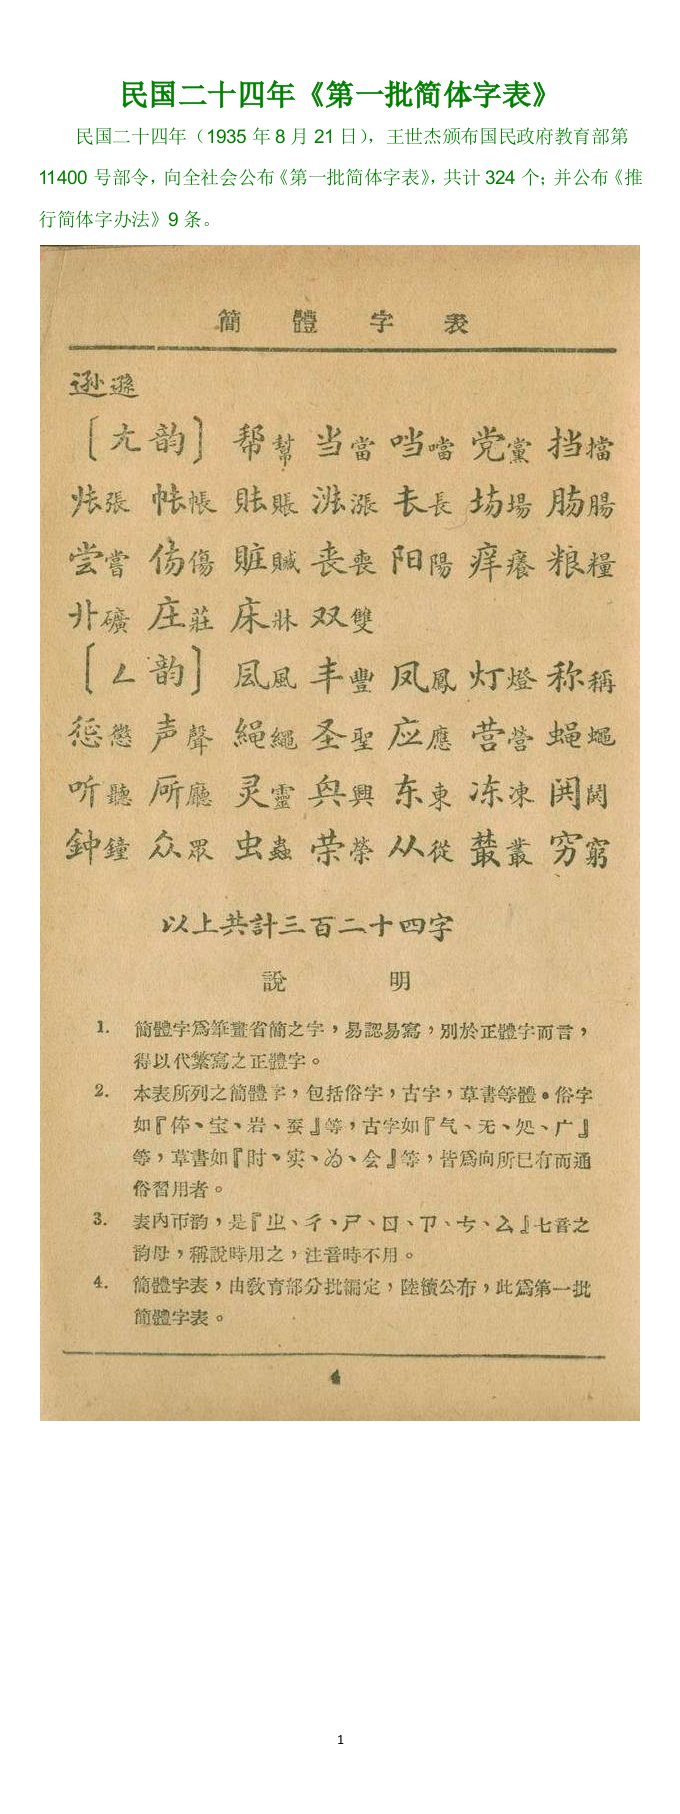 民国二十四年《第一批简体字表》
民国二十四年（1935 年 8 月 21 日），王世杰颁布国民政府教育部第
11400 号部令，向全社会公布《第一批简体字表》，共计 324 个；并公布《推
行简体字办法》9 条。
簡體字表
逊遜
〔ㄤ韵〕 帮幫 当當 噹 党黨 挡擋
张張 帐帳 账賬 涨漲 长長 场場 肠腸
尝嘗 伤傷 赃贓 丧喪 阳陽 痒癢 粮糧
礦 庄莊 床牀 双雙
〔ㄥ韵〕 風 丰豐 凤鳳 灯燈 称稱
惩懲 声聲 繩 圣聖 应應 营營 蝇蠅
听聽 廳 灵靈 興 东東 冻凍 鬨
鐘 众眾 虫蟲 荣榮 从從 叢 穷窮
以上共計三百二十四字
說明
1. 簡體字爲筆畫省簡之字，易認易寫，別於正體字而言，
得以代繁寫之正體字。
2. 本表所列之簡體字，包括俗字，古字，草書等體。俗字
如『体、宝、岩、蚕』等，古字如『气、无、処、广』
等，草書如『时、实、为、会』等，皆爲向所已有而通
俗習用者。
3. 表內帀韵，是『ㄓ、ㄔ、ㄕ、ㄖ、ㄗ、ㄘ、ㄙ』七音之
韵母，稱說時用之，注音時不用。
4. 簡體字表，由敎育部分批編定，陸續公布，此爲第一批
簡體字表。
1